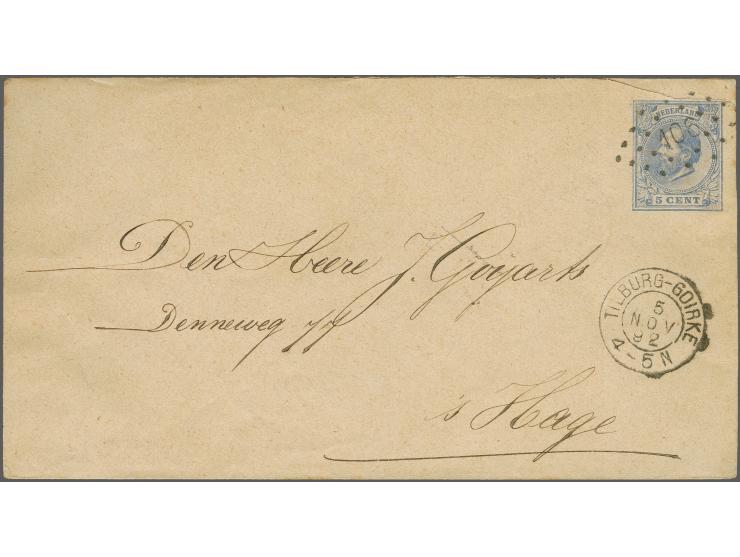 NEDERLAND
106
5 CENT
Den Heere J. Goyarts
Denneweg 77
's Hage
TILBURG-GOIRKE
5
NOV
92
4-5N